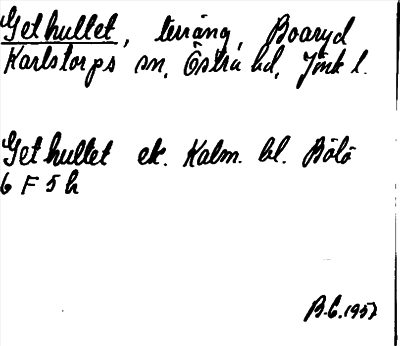 Gethultet, terräng, Boaryd
Karlstorps sn, Östra hd, Jönk l.
Gethultet ek. Kalm. bl. Bölö
6 F 5 h
B.E. 1957